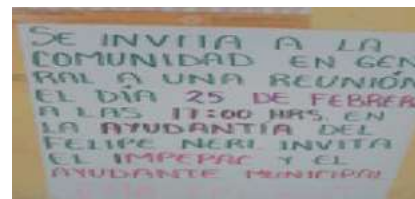 SE INVITA A LA
COMUNIDAD EN GEN
RAL A UNA REUNIÓN
EL DÍA 25 DE FEBRER
A LAS 17:00 HRS. EN
LA AYUDANTIA DEL
FELIPE NERI. INVITA
EL IMPEPAC Y EL
AYUDANTE MUNICIPAL